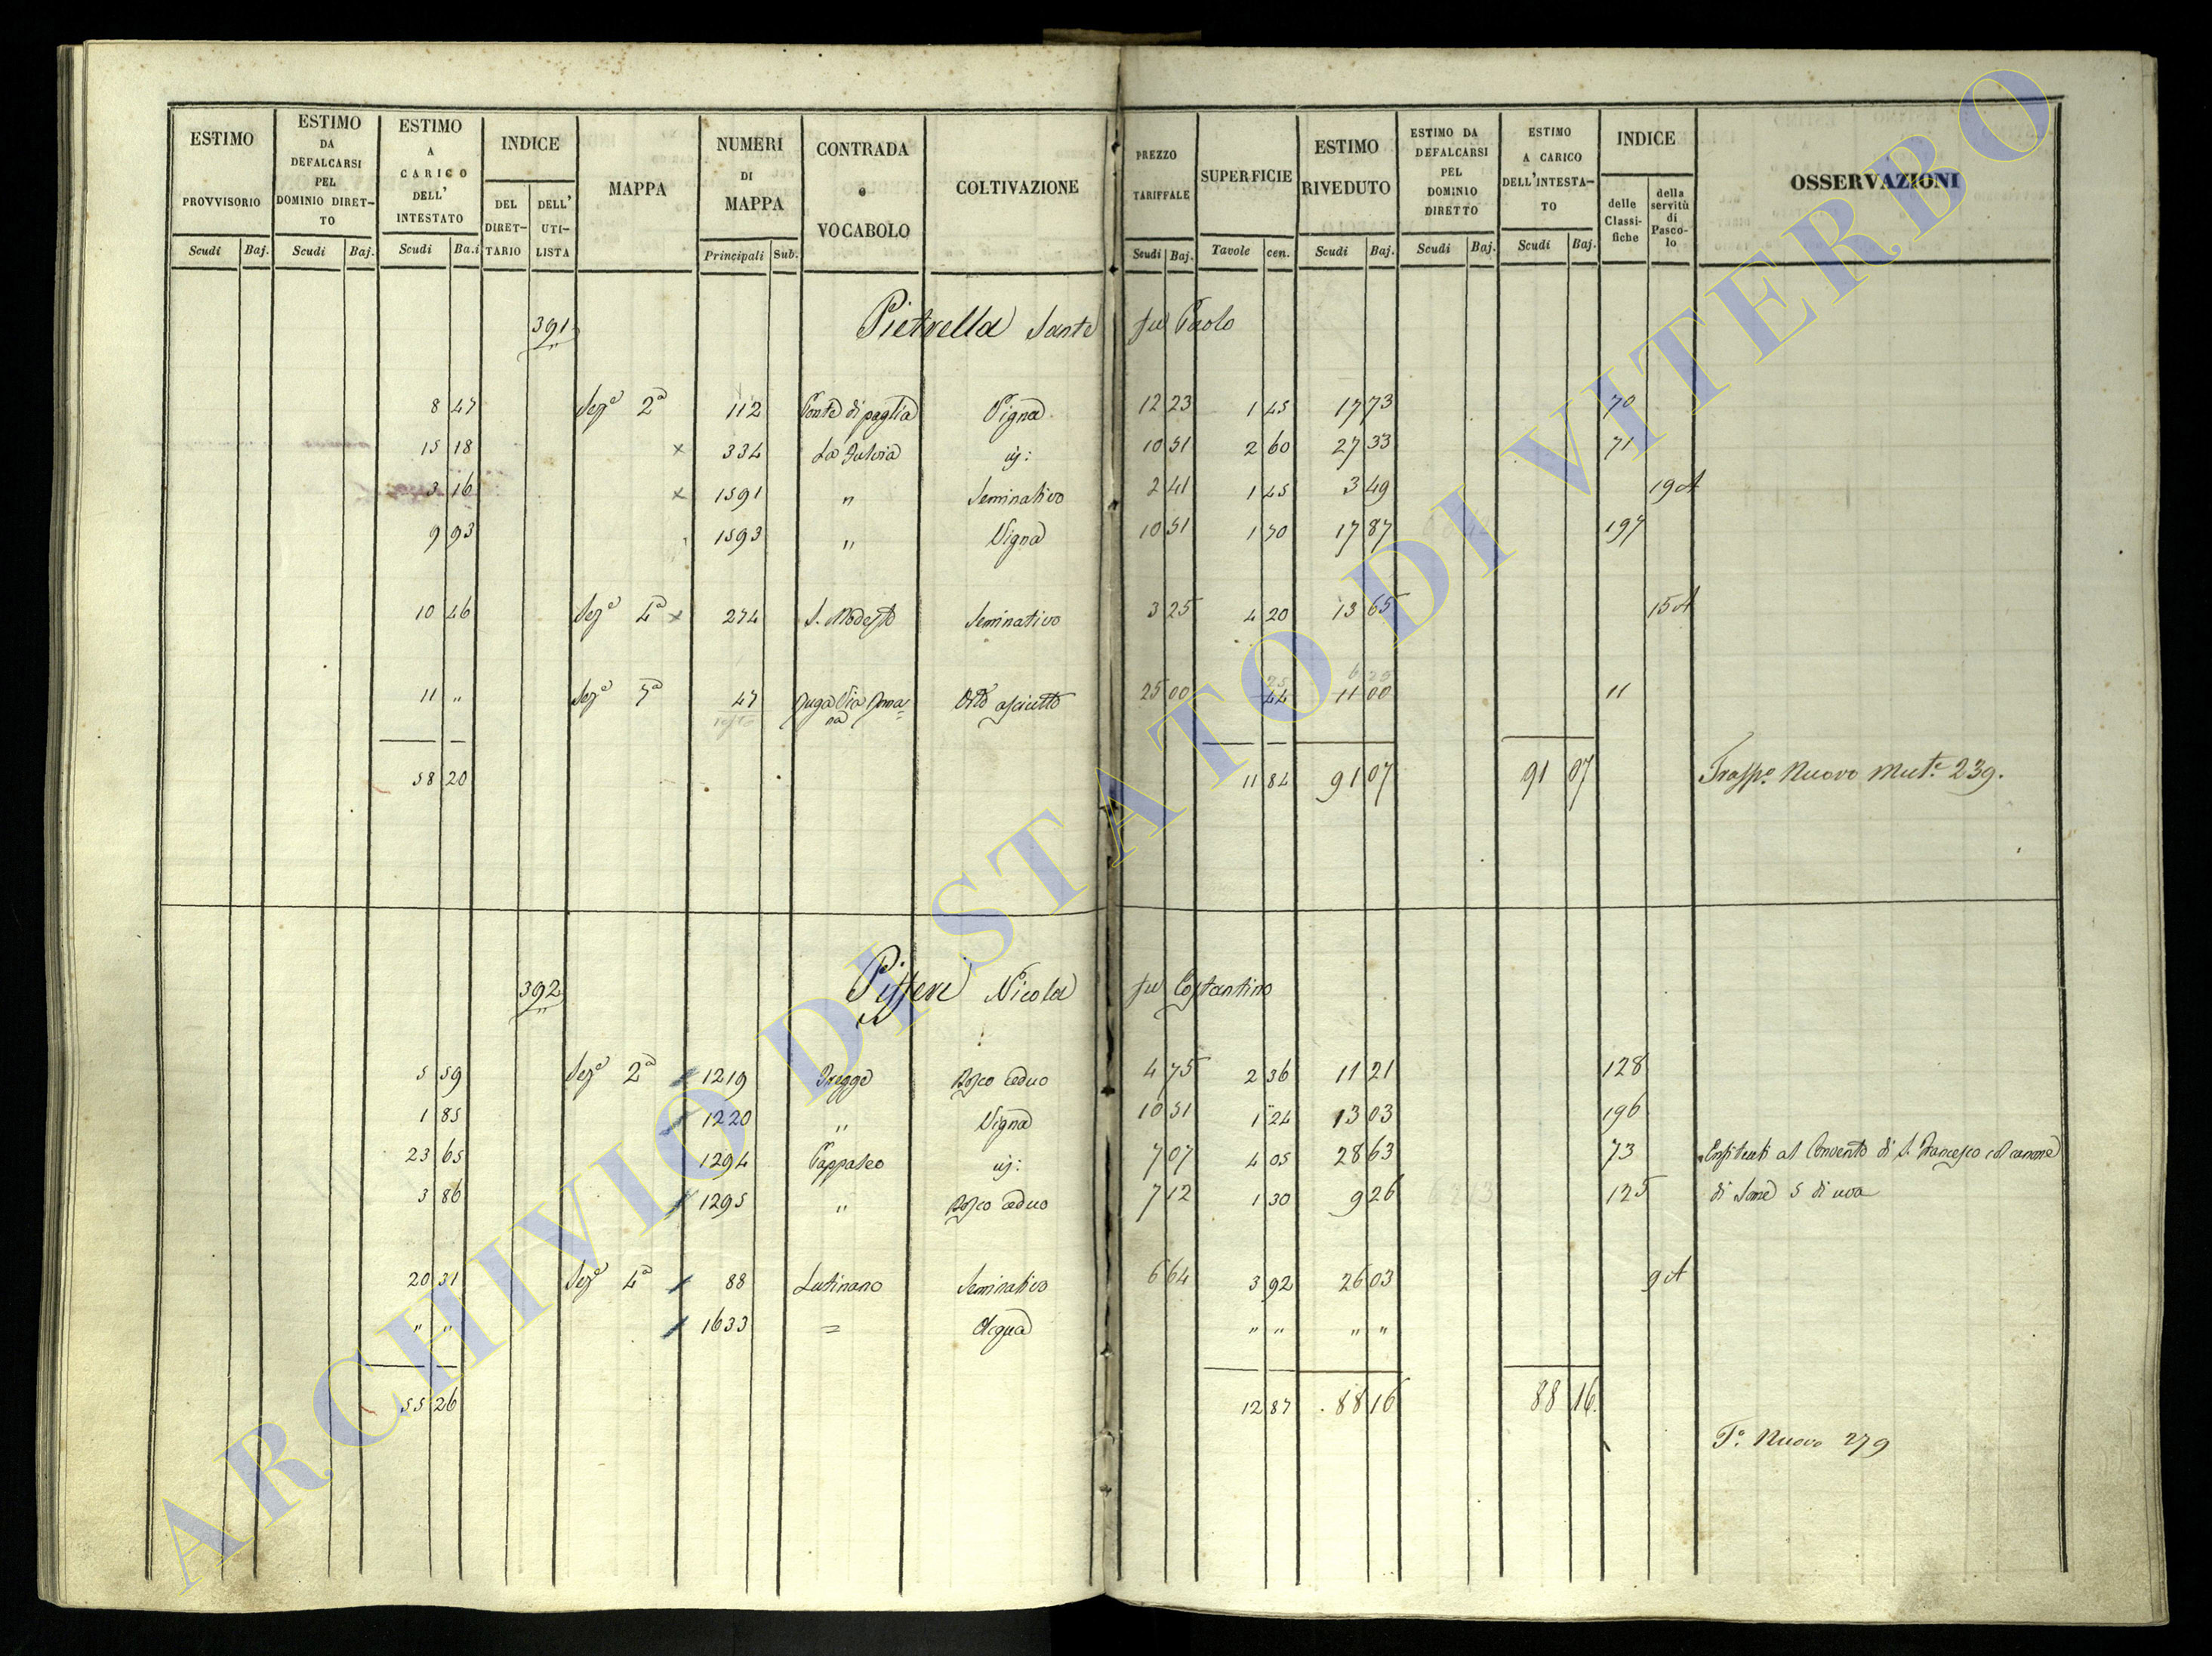 ESTIMO PROVVISORIO Scudi Baj.
ESTIMO DA DEFALCARSI PEL DOMINIO DIRET- TO Scudi Baj.
ESTIMO A CARICO DELL' INTESTATO Scudi Ba.i
INDICE DEL DIRET- TARIO DELL' UTI- LISTA
MAPPA
NUMERI DI MAPPA Principali Sub.
CONTRADA o VOCABOLO
COLTIVAZIONE
PREZZO TARIFFALE Scudi Baj.
SUPERFICIE Tavole cen.
ESTIMO RIVEDUTO Scudi Baj.
ESTIMO DA DEFALCARSI PEL DOMINIO DIRETTO Scudi Baj.
ESTIMO A CARICO DELL'INTESTA- TO Scudi Baj.
INDICE delle Classi- fiche della servitù di Pasco- lo
OSSERVAZIONI
391 Pietrella Sante fu Paolo
8 47 Sez.e 2a 112 Ponte di paglia Vigna 12 23 1 45 17 73 70
15 18 x 334 La Fulvia 10 51 2 60 27 33 71
3 16 x 1591 " Seminativo 2 41 1 45 3 49 19 A
9 93 1593 " Vigna 10 51 1 70 17 87 197
10 46 Sez.e 4a x 274 S. Modesto Seminativo 3 25 4 20 13 65 15 A
25 6 25
11 " Sez.e 7a 47 Via Roma= na Orto asciutto 25 00 44 11 00 11
resto
58 20 11 84 91 07 91 07 Trasp.o Nuovo Mut.e 239.
392 Pifferi Nicola fu Costantino
5 59 Sez.e 2a 1219 Bosco ceduo 4 75 2 36 11 21 128
1 85 1220 " Vigna 10 51 1 24 13 03 196
23 65 1294 Pappaleo 7 07 4 05 28 63 73 Enfiteuti al Convento di S. Francesco col canone
3 86 1295 " Bosco ceduo 7 12 1 30 9 26 125 di Some 5 di uva
20 31 Sez.e 4a 88 Lutinano Seminativo 6 64 3 92 26 03 9 A
" " 1633 = Acqua " " " "
55 26 12 87 88 16 88 16.
T.o Nuovo 279
ARCHIVIO DI STATO DI VITERBO